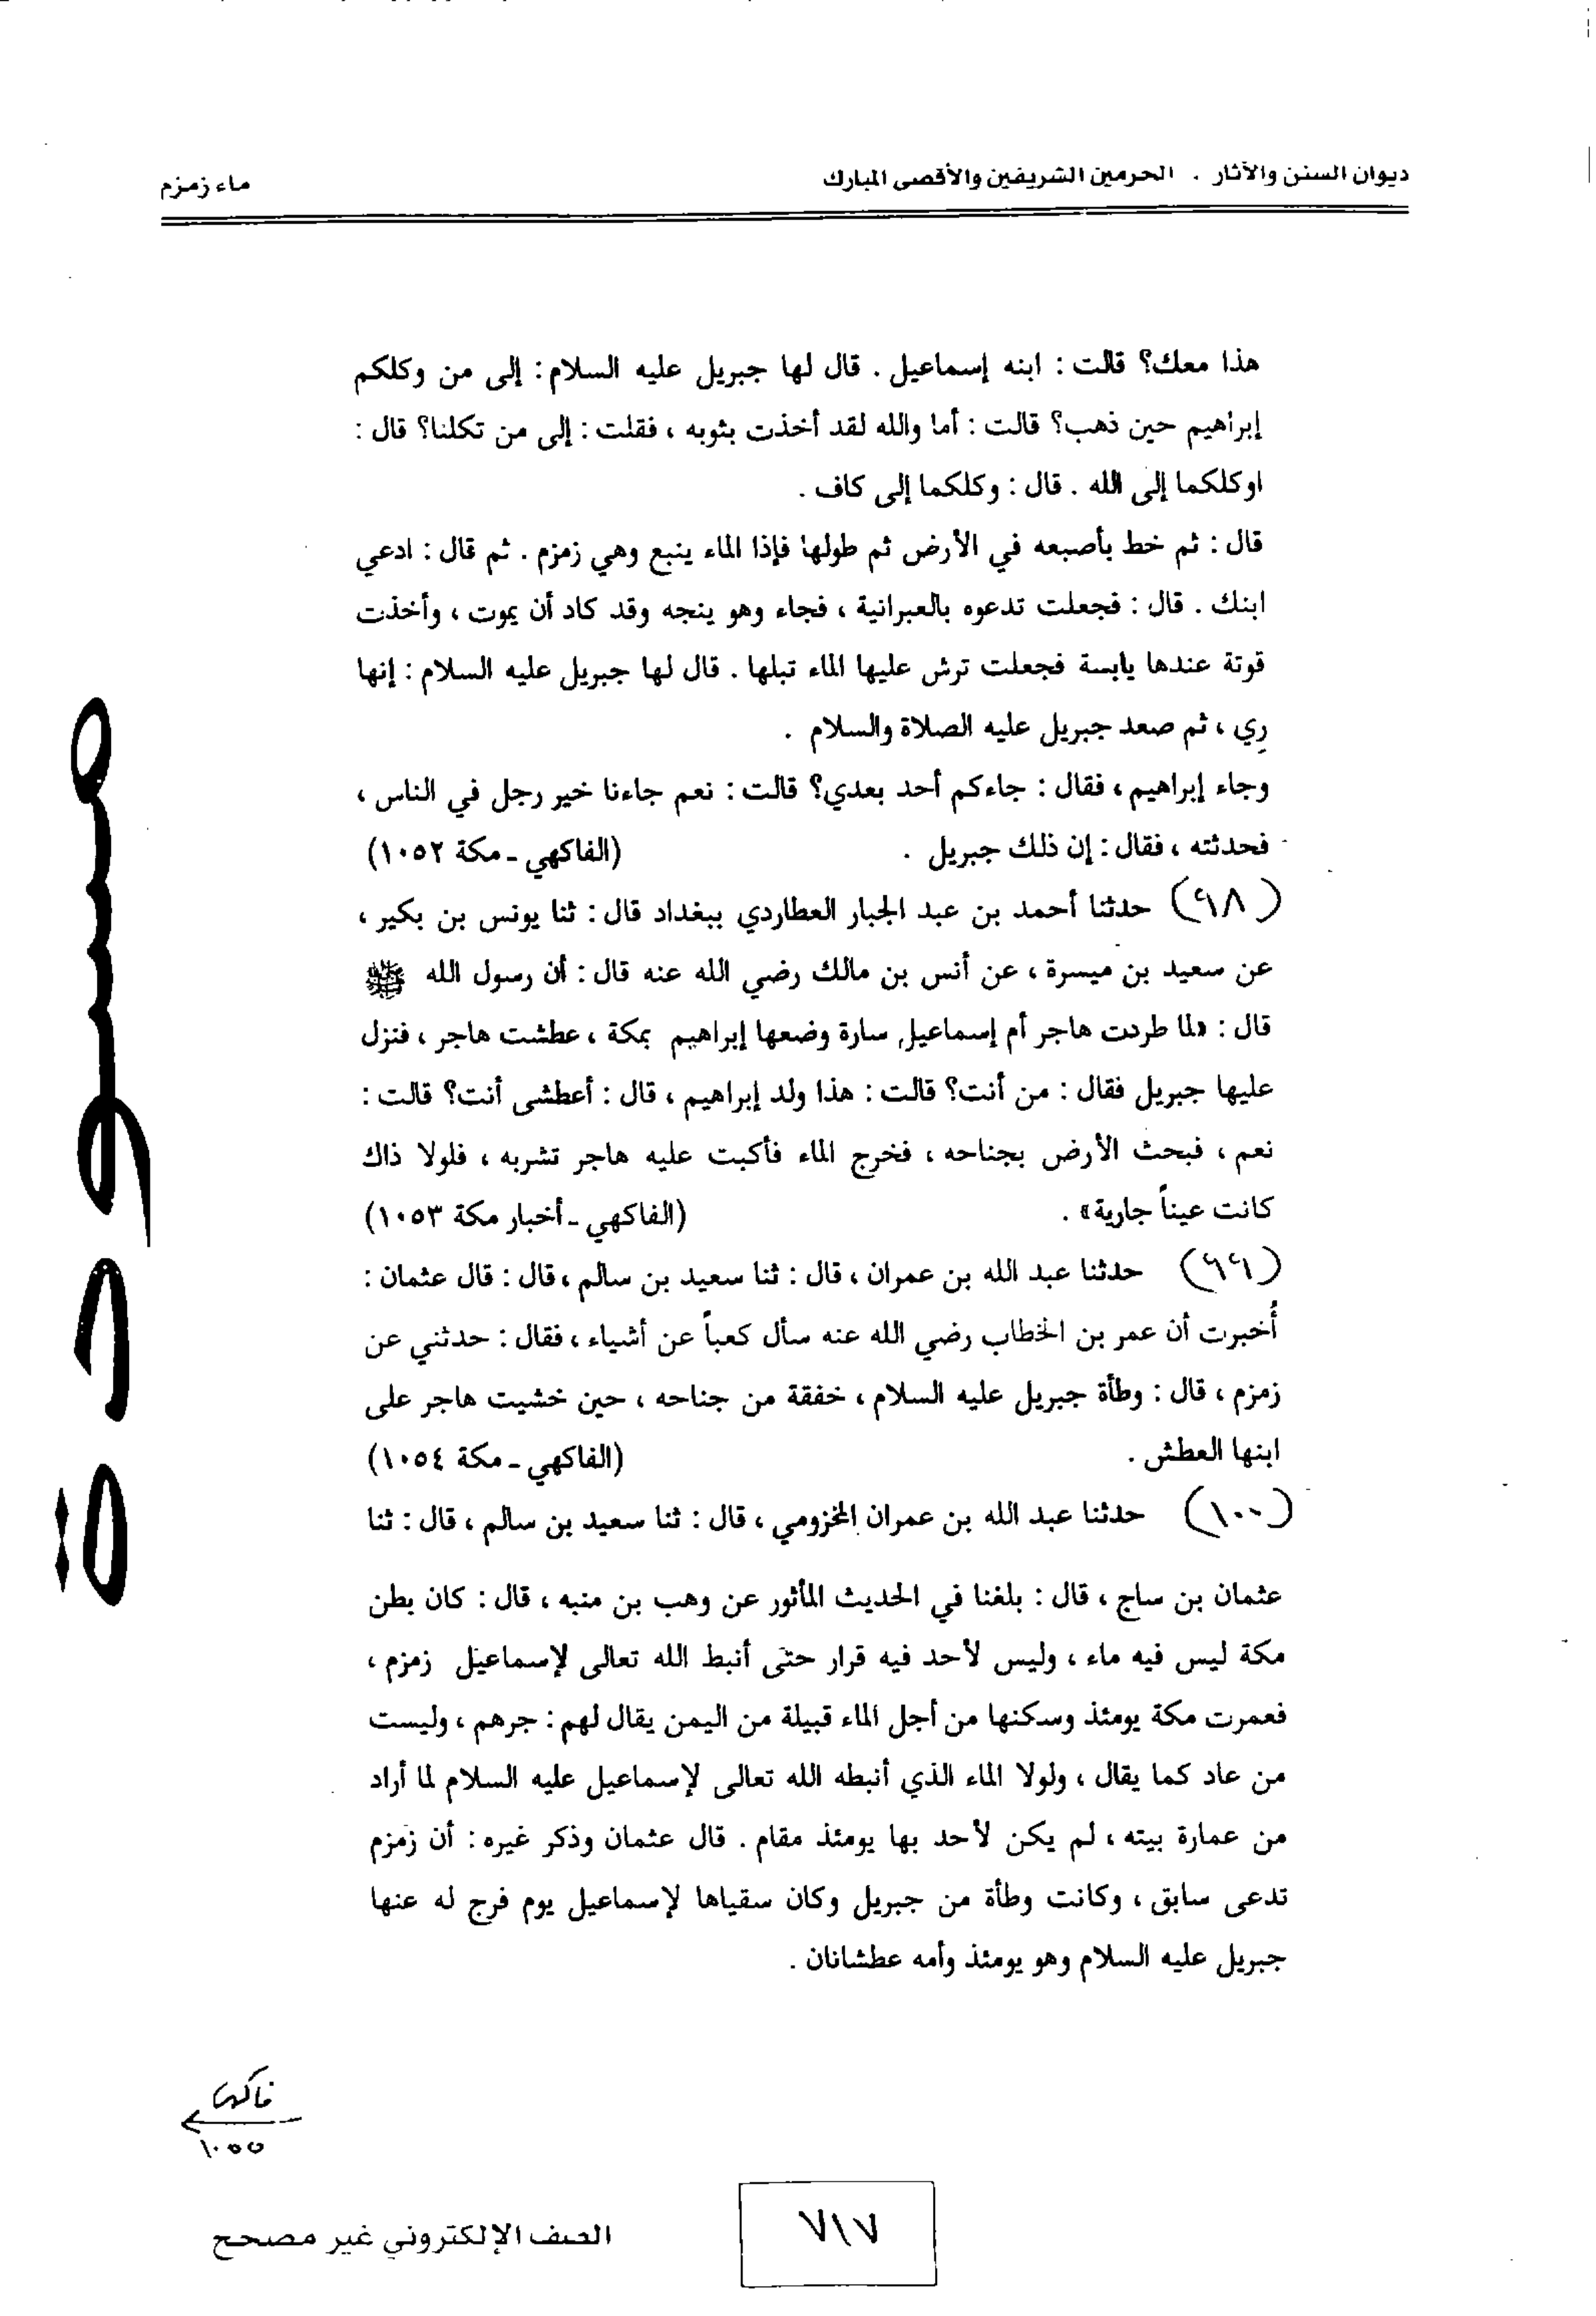 ديوان السنن والآثار . الحرمين الشريفين والأقصى المبارك
ماء زمزم
هذا معك؟ قالت : ابنه إسماعيل . قال لها جبريل عليه السلام : إلى من وكلكم
إبراهيم حين ذهب؟ قالت : أما والله لقد أخذت بثوبه ، فقلت : إلى من تكلنا؟ قال :
اوكلكما إلى الله . قال : وكلكما إلى كاف .
قال : ثم خط بأصبعه في الأرض ثم طولها فإذا الماء ينبع وهي زمزم . ثم قال : ادعي
ابنك . قال : فجعلت تدعوه بالعبرانية ، فجاء وهو ينجه وقد كاد أن يموت ، وأخذت
قوتة عندها يابسة فجعلت ترش عليها الماء تبلها . قال لها جبريل عليه السلام : إنها
ري ، ثم صعد جبريل عليه الصلاة والسلام .
وجاء إبراهيم ، فقال : جاءكم أحد بعدي؟ قالت : نعم جاءنا خير رجل في الناس ،
فحدثته ، فقال : إن ذلك جبريل . (الفاكهي ـ مكة ١٠٥٢)
(٩٨) حدثنا أحمد بن عبد الجبار العطاردي ببغداد قال : ثنا يونس بن بكير ،
عن سعيد بن ميسرة ، عن أنس بن مالك رضي الله عنه قال : أن رسول الله ﷺ
قال : «لما طردت هاجر أم إسماعيل سارة وضعها إبراهيم بمكة ، عطشت هاجر ، فنزل
عليها جبريل فقال : من أنت؟ قالت : هذا ولد إبراهيم ، قال : أعطشى أنت؟ قالت :
نعم ، فبحث الأرض بجناحه ، فخرج الماء فأكبت عليه هاجر تشربه ، فلولا ذاك
كانت عيناً جارية» . (الفاكهي ـ أخبار مكة ١٠٥٣)
(٩٩) حدثنا عبد الله بن عمران ، قال : ثنا سعيد بن سالم ، قال : قال عثمان :
أُخبرت أن عمر بن الخطاب رضي الله عنه سأل كعباً عن أشياء ، فقال : حدثني عن
زمزم ، قال : وطأة جبريل عليه السلام ، خفقة من جناحه ، حين خشيت هاجر على
ابنها العطش . (الفاكهي ـ مكة ١٠٥٤)
(١٠٠) حدثنا عبد الله بن عمران المخزومي ، قال : ثنا سعيد بن سالم ، قال : ثنا
عثمان بن ساج ، قال : بلغنا في الحديث المأثور عن وهب بن منبه ، قال : كان بطن
مكة ليس فيه ماء ، وليس لأحد فيه قرار حتى أنبط الله تعالى لإسماعيل زمزم ،
فعمرت مكة يومئذ وسكنها من أجل الماء قبيلة من اليمن يقال لهم : جرهم ، وليست
من عاد كما يقال ، ولولا الماء الذي أنبطه الله تعالى لإسماعيل عليه السلام لما أراد
من عمارة بيته ، لم يكن لأحد بها يومئذ مقام . قال عثمان وذكر غيره : أن زمزم
تدعى سابق ، وكانت وطأة من جبريل وكان سقياها لإسماعيل يوم فرج له عنها
جبريل عليه السلام وهو يومئذ وأمه عطشانان .
مسودة
فاكهي
١٠٥٥
٧١٧
الصف الإلكتروني غير مصحح